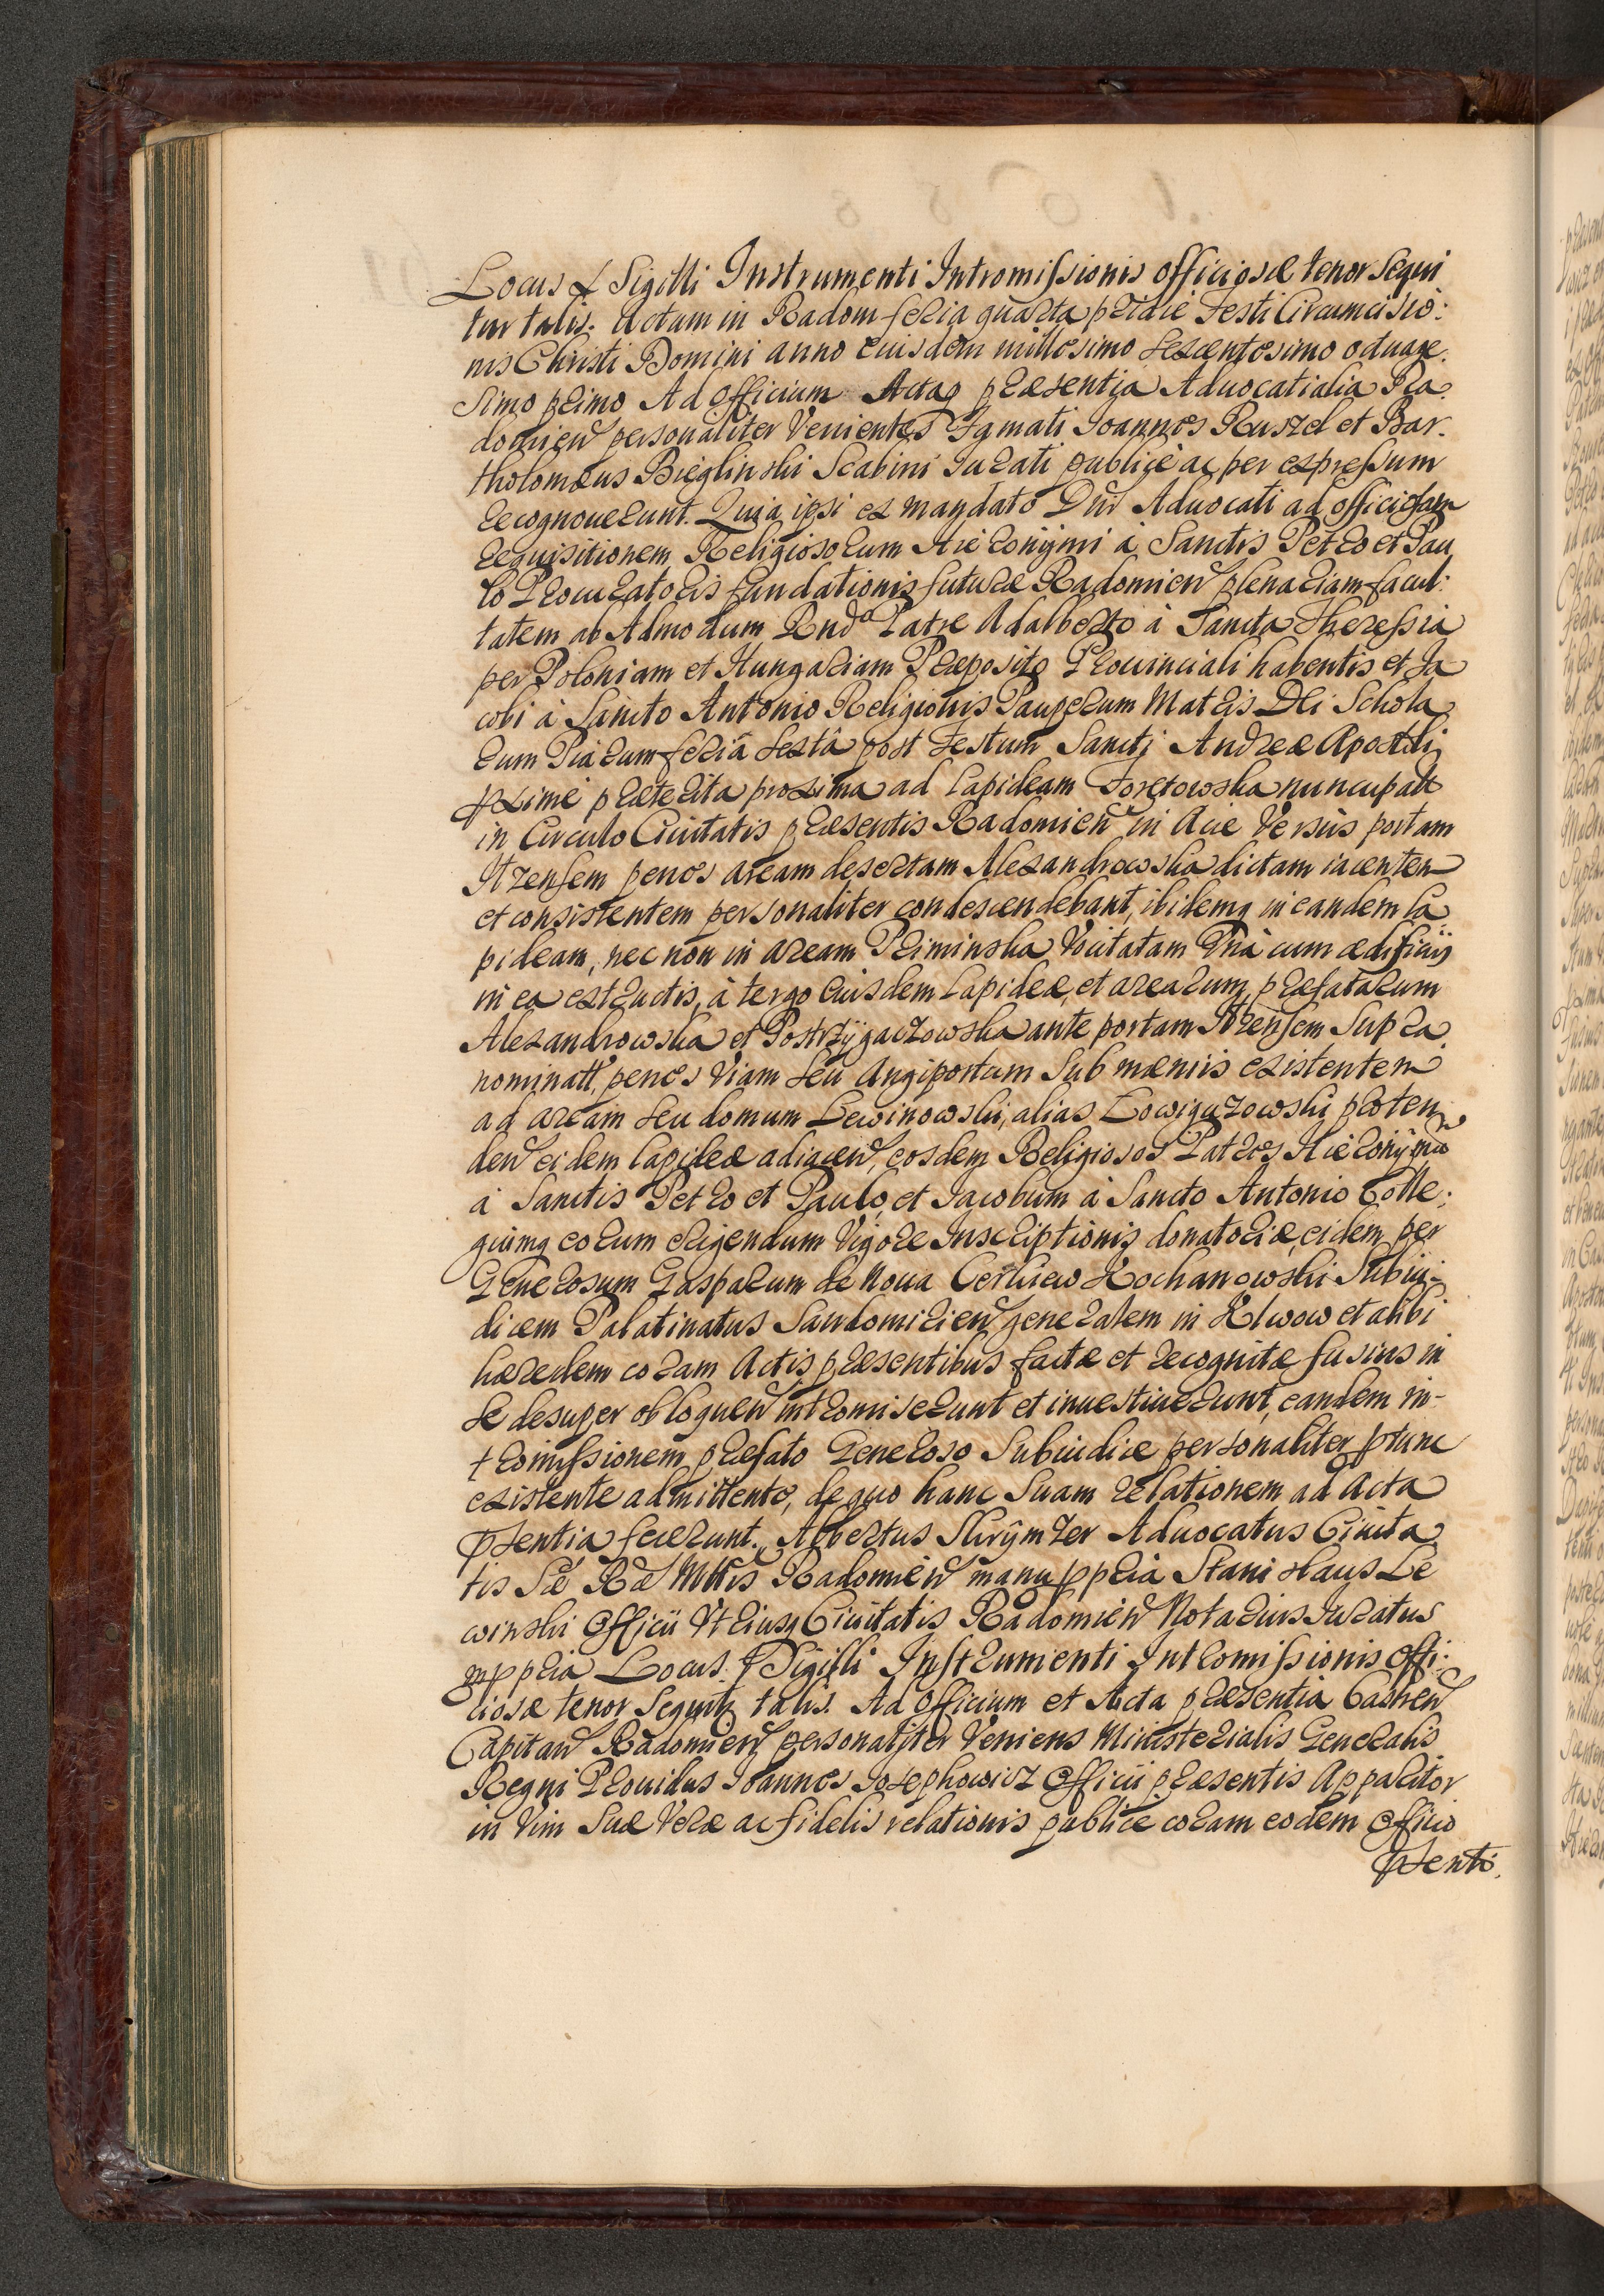 Locus L Sigilli Instrumenti Intromissionis officiosæ tenor Sequi
tur talis. Actum in Radom feria quarta pridie Festi Circumcisio:
nis Christi Domini anno eiusdem millesimo sexcentesimo octuage.
simo primo Ad Officium Actaq præsentia Aduocatialia Ra
domien personaliter Venientes Fgmati Joannes Ruszel et Bar.
tholomæus Bieglinski Scabini Iurati publice ac per expressum
recognouerunt. Quia ipsi ex mandato Dni Aduocati ad officiosam
requisitionem Religiosorum Hieronijmi à Sanctis Petro et Pau
lo Procuratoris fundationis futuræ Radomien plenariam facul:
tatem ab Admodum Rndo Patre Adalberto à Sancta Theressia
per Poloniam et Hungariam Præposito Prouinciali habentis et Ja
cobi à Sancto Antonio Religionis Pauperum Matris Dei Schola
rum Piarum feriâ sextâ post Festum Sancti Andreæ Apostoli
pxime præterita proxima ad lapideam Foretowska nuncupatt
in Circulo Ciuitatis præsentis Radomien in Acie Versus portam
Itzensem penes aream desertam Alexandrowska dictam iacentem
et consistentem personaliter condescendebant, ibidemq in eandem la
pideam, nec non in aream Piminska Vocitatam Vnà cum ædificijs
in ea extructis, à tergo Eiusdem lapideæ, et arearum præfatarum
Alexandrowska et Postrzygaczowska ante portam Itzensem Supra
nominatt, penes Viam seu Angiportum Sub mæniis existentem
ad aream seu domum Lewinowski, alias Lowiguzowski proten
den eidem lapideæ adiacen, eosdem Religiosos Patres Hieronijmu
à Sanctis Petro et Paulo, et Jacobum à Sancto Antonio Colle:
giumq eorum erigendum Vigore Inscriptionis donatoriæ, eidem per
Generosum Gasparum de Noua Cerkiew Kochanowski Subiu:
dicem Palatinatus Sandomirien generalem in Klwow et alibi
hæredem coram Actis præsentibus factæ et recognitæ fusius in
se desuper obloquen intromiserunt et inuestiuerunt, eandem in-
tromissionem præfato Generoso Subiudice personaliter ptunc
existente admittente, de quo hanc Suam relationem ad Acta
psentia fecerunt. Albertus Skrÿmzer Aduocatus Ciuita
tis Sæ Ræ Mttis Radomien manu ppria Stanislaus Le
winski Officii Vtriusq Ciuitatis Radomien Notarius Iuratus
mppria Locus L Sigilli Instrumenti Intromissionis Offi:
ciosæ tenor Sequitr talis. Ad Officium et Acta præsentia Castren
Capitan Radomien personaliter Veniens Ministerialis Generalis
Regni Prouidus Joannes Josephowicz Officii præsentis Apparitor
in Vim Suæ Veræ ac fidelis relationis publice coram eodem Officio
psenti.